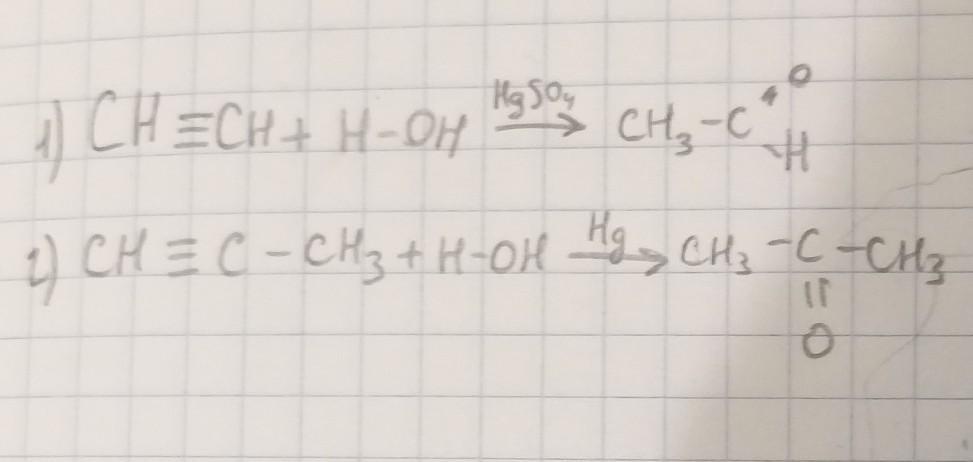 1) CH≡CH + H-OH HgSO₄→ CH₃-C=O -H
2) CH≡C-CH₃ + H-OH Hg→ CH₃-C-CH₃
=
O